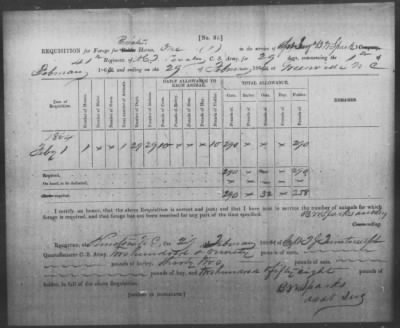 [No. 31]
Private
REQUISITION for Forage for Public Horses, One (1) in the service of Asst Surg B W Sparks Company,
4th Regiment of N. C. Cavalry C. S. Army, for 29 days, commencing the 1st of
February 1864 and ending on the 29 of February, 1864, at Greenville N C
DAILY ALLOWANCE TO EACH ANIMAL. TOTAL ALLOWANCE.
Date of Requisition. Number of Horses. Number of Mules. Total number of Animals. Number of Days. Number of Rations. Pounds of Corn. Pounds of Barley. Pounds of Oats. Pounds of Hay. Pounds of Fodder. Corn. Barley. Oats. Hay. Fodder. REMARKS
1864
Feby 1 1 x 1 29 29 10 x x x 10 290 x x x 290
Required, 290 290
On hand, to be deducted,
290 32 258
I certify on honor, that the above Requisition is correct and just; and that I have now in service the number of animals for which
forage is required, and that forage has not been received for any part of the time specified.
B W Sparks
Commanding.
RECEIVED, Kinston N. C. on 29 February 1864 of Capt
Quartermaster C. S. Army, two hundred & ninety pounds of corn,
pounds of barley, thirty two pounds of oats,
pounds of hay, and two hundred & fifty eight pounds of
fodder, in full of the above Requisition.
B W Sparks
[SIGNED IN DUPLICATE.] asst surg